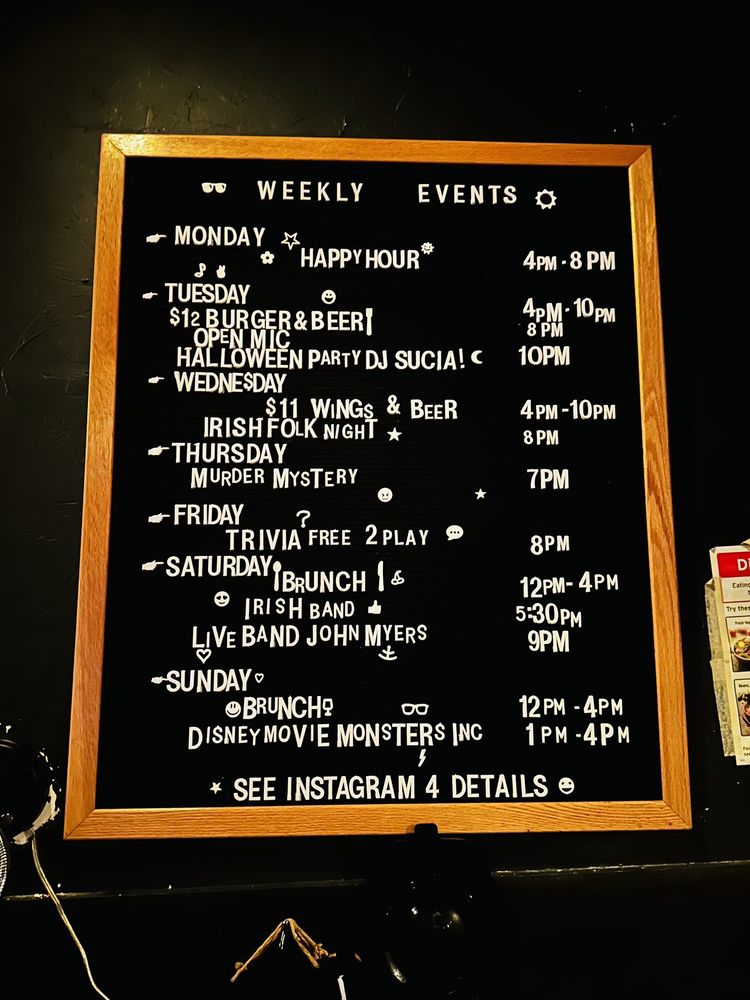 WEEKLY EVENTS
MONDAY
HAPPY HOUR 4PM - 8 PM
TUESDAY
$12 BURGER & BEER 4PM - 10PM
OPEN MIC 8 PM
HALLOWEEN PARTY DJ SUCIA! 10PM
WEDNESDAY
$11 WINGS & BEER 4PM -10PM
IRISH FOLK NIGHT 8PM
THURSDAY
MURDER MYSTERY 7PM
FRIDAY ?
TRIVIA FREE 2 PLAY 8PM
SATURDAY
BRUNCH 12PM- 4PM
IRISH BAND 5:30PM
LIVE BAND JOHN MYERS 9PM
SUNDAY
BRUNCH 12PM -4PM
DISNEY MOVIE MONSTERS INC 1PM -4PM
SEE INSTAGRAM 4 DETAILS
Di
Eating
Try thes